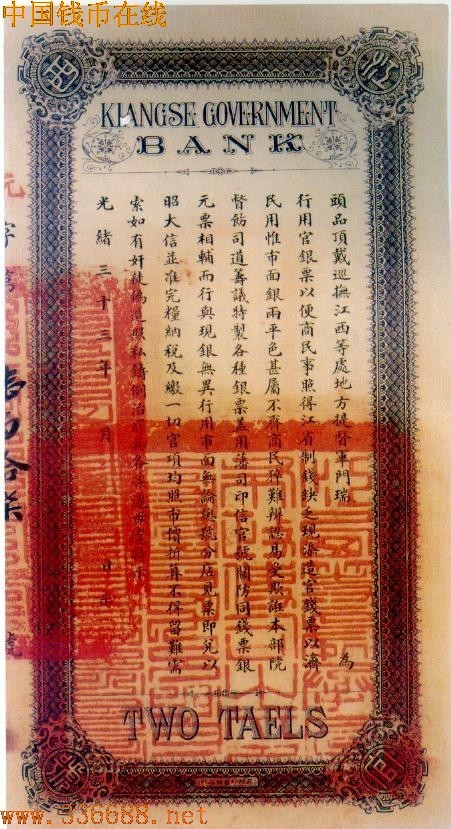 中国钱币在线
江
西
KIANGSE GOVERNMENT
BANK
頭品頂戴巡撫江西等處地方提督軍門瑞 為
行用官銀票以便商民事照得江省制錢缺乏現添造官錢票以濟
民用惟市面銀兩平色甚屬不齊商民猝難辨認易受欺誑本部院
督飭司道籌議特製各種銀票蓋用藩司印信官號關防同錢票銀
元票相輔而行與現銀無異行用市面無論總號分店見票即兌以
昭大信並准完糧納稅及繳一切官項均照市價折算不得留難需
索如有奸徒偽造照私鑄例治罪其各凜遵毋
光緒三十三年 月 日
元字 號
TWO TAELS
官
www.336688.net